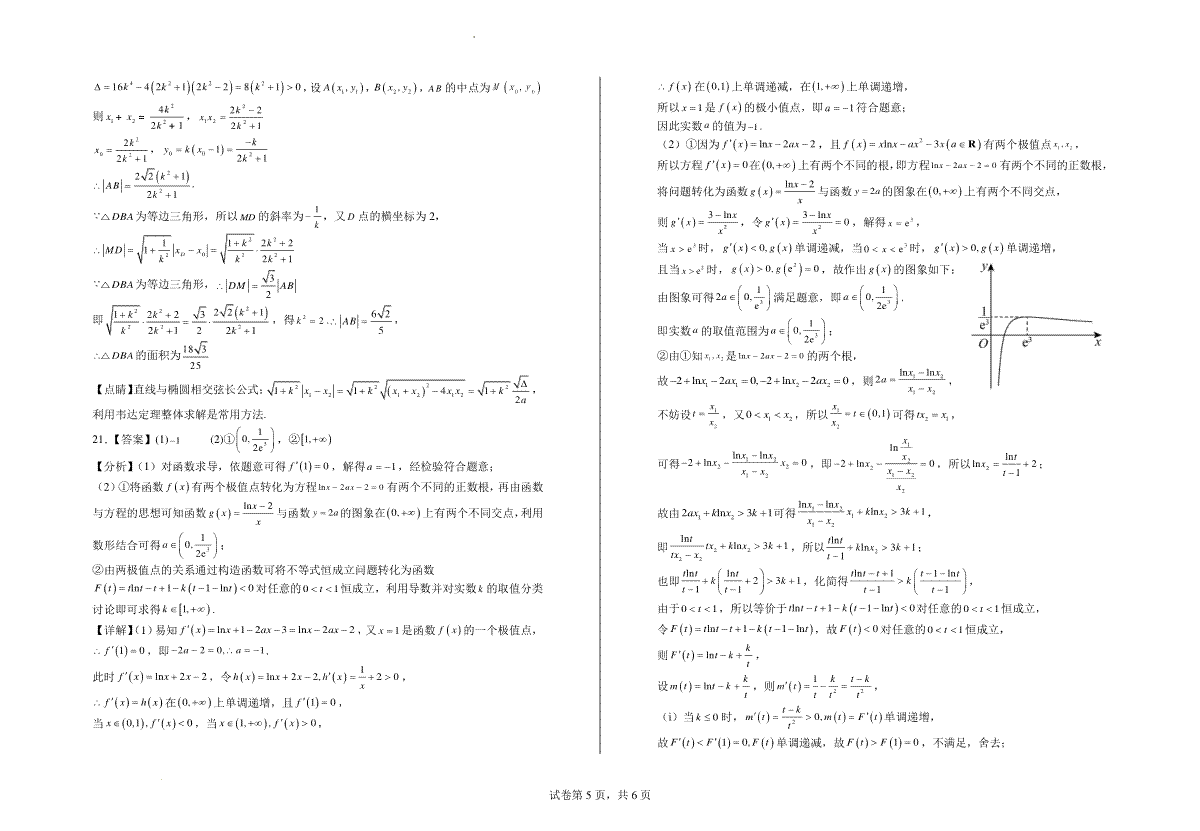 Δ=16k⁴−4(2k²+1)(2k²−2)=8(k²+1)>0，设A(x₁,y₁)，B(x₂,y₂)，AB的中点为M(x₀,y₀)
则x₁+x₂=4k²/(2k²+1)，x₁x₂=(2k²−2)/(2k²+1)
x₀=2k²/(2k²+1)，y₀=k(x₀−1)=−k/(2k²+1)
∴|AB|=2√2(k²+1)/(2k²+1).
∵△DBA为等边三角形，所以MD的斜率为−1/k，又D点的横坐标为2，
∴|MD|=√(1+1/k²)|x_D−x₀|=√((1+k²)/k²)·(2k²+2)/(2k²+1)
∵△DBA为等边三角形，∴|DM|=(√3/2)|AB|
即√((1+k²)/k²)·(2k²+2)/(2k²+1)=(√3/2)·2√2(k²+1)/(2k²+1)，得k²=2.∴|AB|=6√2/5，
∴△DBA的面积为18√3/25
【点睛】直线与椭圆相交弦长公式：√(1+k²)|x₁−x₂|=√(1+k²)√((x₁+x₂)²−4x₁x₂)=√(1+k²)√Δ/(2a)，
利用韦达定理整体求解是常用方法.
21.【答案】(1)−1 (2)①(0,1/(2e³))，②[1,+∞)
【分析】（1）对函数求导，依题意可得f′(1)=0，解得a=−1，经检验符合题意；
（2）①将函数f(x)有两个极值点转化为方程lnx−2ax−2=0有两个不同的正数根，再由函数
与方程的思想可知函数g(x)=(lnx−2)/x与函数y=2a的图象在(0,+∞)上有两个不同交点，利用
数形结合可得a∈(0,1/(2e³))；
②由两极值点的关系通过构造函数可将不等式恒成立问题转化为函数
F(t)=tlnt−t+1−k(t−1−lnt)<0对任意的0<t<1恒成立，利用导数并对实数k的取值分类
讨论即可求得k∈[1,+∞).
【详解】（1）易知f′(x)=lnx+1−2ax−3=lnx−2ax−2，又x=1是函数f(x)的一个极值点，
∴f′(1)=0，即−2a−2=0,∴a=−1.
此时f′(x)=lnx+2x−2，令h(x)=lnx+2x−2,h′(x)=1/x+2>0，
∴f′(x)=h(x)在(0,+∞)上单调递增，且f′(1)=0，
当x∈(0,1),f′(x)<0，当x∈(1,+∞),f′(x)>0，
∴f(x)在(0,1)上单调递减，在(1,+∞)上单调递增，
所以x=1是f(x)的极小值点，即a=−1符合题意；
因此实数a的值为−1.
（2）①因为f′(x)=lnx−2ax−2，且f(x)=xlnx−ax²−3x(a∈R)有两个极值点x₁,x₂，
所以方程f′(x)=0在(0,+∞)上有两个不同的根，即方程lnx−2ax−2=0有两个不同的正数根，
将问题转化为函数g(x)=(lnx−2)/x与函数y=2a的图象在(0,+∞)上有两个不同交点，
则g′(x)=(3−lnx)/x²，令g′(x)=(3−lnx)/x²=0，解得x=e³，
当x>e³时，g′(x)<0,g(x)单调递减，当0<x<e³时，g′(x)>0,g(x)单调递增，
且当x>e²时，g(x)>0,g(e²)=0，故作出g(x)的图象如下：
由图象可得2a∈(0,1/e³)满足题意，即a∈(0,1/(2e³)).
即实数a的取值范围为a∈(0,1/(2e³))；
y
1/e³
O
e³
x
②由①知x₁,x₂是lnx−2ax−2=0的两个根，
故−2+lnx₁−2ax₁=0,−2+lnx₂−2ax₂=0，则2a=(lnx₁−lnx₂)/(x₁−x₂)，
不妨设t=x₁/x₂，又0<x₁<x₂，所以x₁/x₂=t∈(0,1)可得tx₂=x₁，
可得−2+lnx₂−(lnx₁−lnx₂)/(x₁−x₂)x₂=0，即−2+lnx₂−ln(x₁/x₂)/((x₁−x₂)/x₂)=0，所以lnx₂=lnt/(t−1)+2；
故由2ax₁+klnx₂>3k+1可得(lnx₁−lnx₂)/(x₁−x₂)x₁+klnx₂>3k+1，
即lnt/(tx₂−x₂)tx₂+klnx₂>3k+1，所以tlnt/(t−1)+klnx₂>3k+1；
也即tlnt/(t−1)+k(lnt/(t−1)+2)>3k+1，化简得(tlnt−t+1)/(t−1)>k((t−1−lnt)/(t−1))，
由于0<t<1，所以等价于tlnt−t+1−k(t−1−lnt)<0对任意的0<t<1恒成立，
令F(t)=tlnt−t+1−k(t−1−lnt)，故F(t)<0对任意的0<t<1恒成立，
则F′(t)=lnt−k+k/t，
设m(t)=lnt−k+k/t，则m′(t)=1/t−k/t²=(t−k)/t²，
（i）当k≤0时，m′(t)=(t−k)/t²>0,m(t)=F′(t)单调递增，
故F′(t)<F′(1)=0,F(t)单调递减，故F(t)>F(1)=0，不满足，舍去；
试卷第5页，共6页